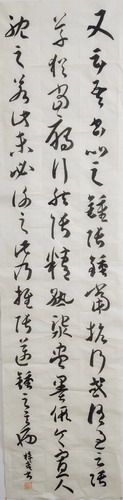 又云吾書比之鍾張鍾當抗行或謂過之張
草猶當鴈行然張精熟池水盡墨假令寡人
耽之若此未必謝之此乃推張邁鍾之意也